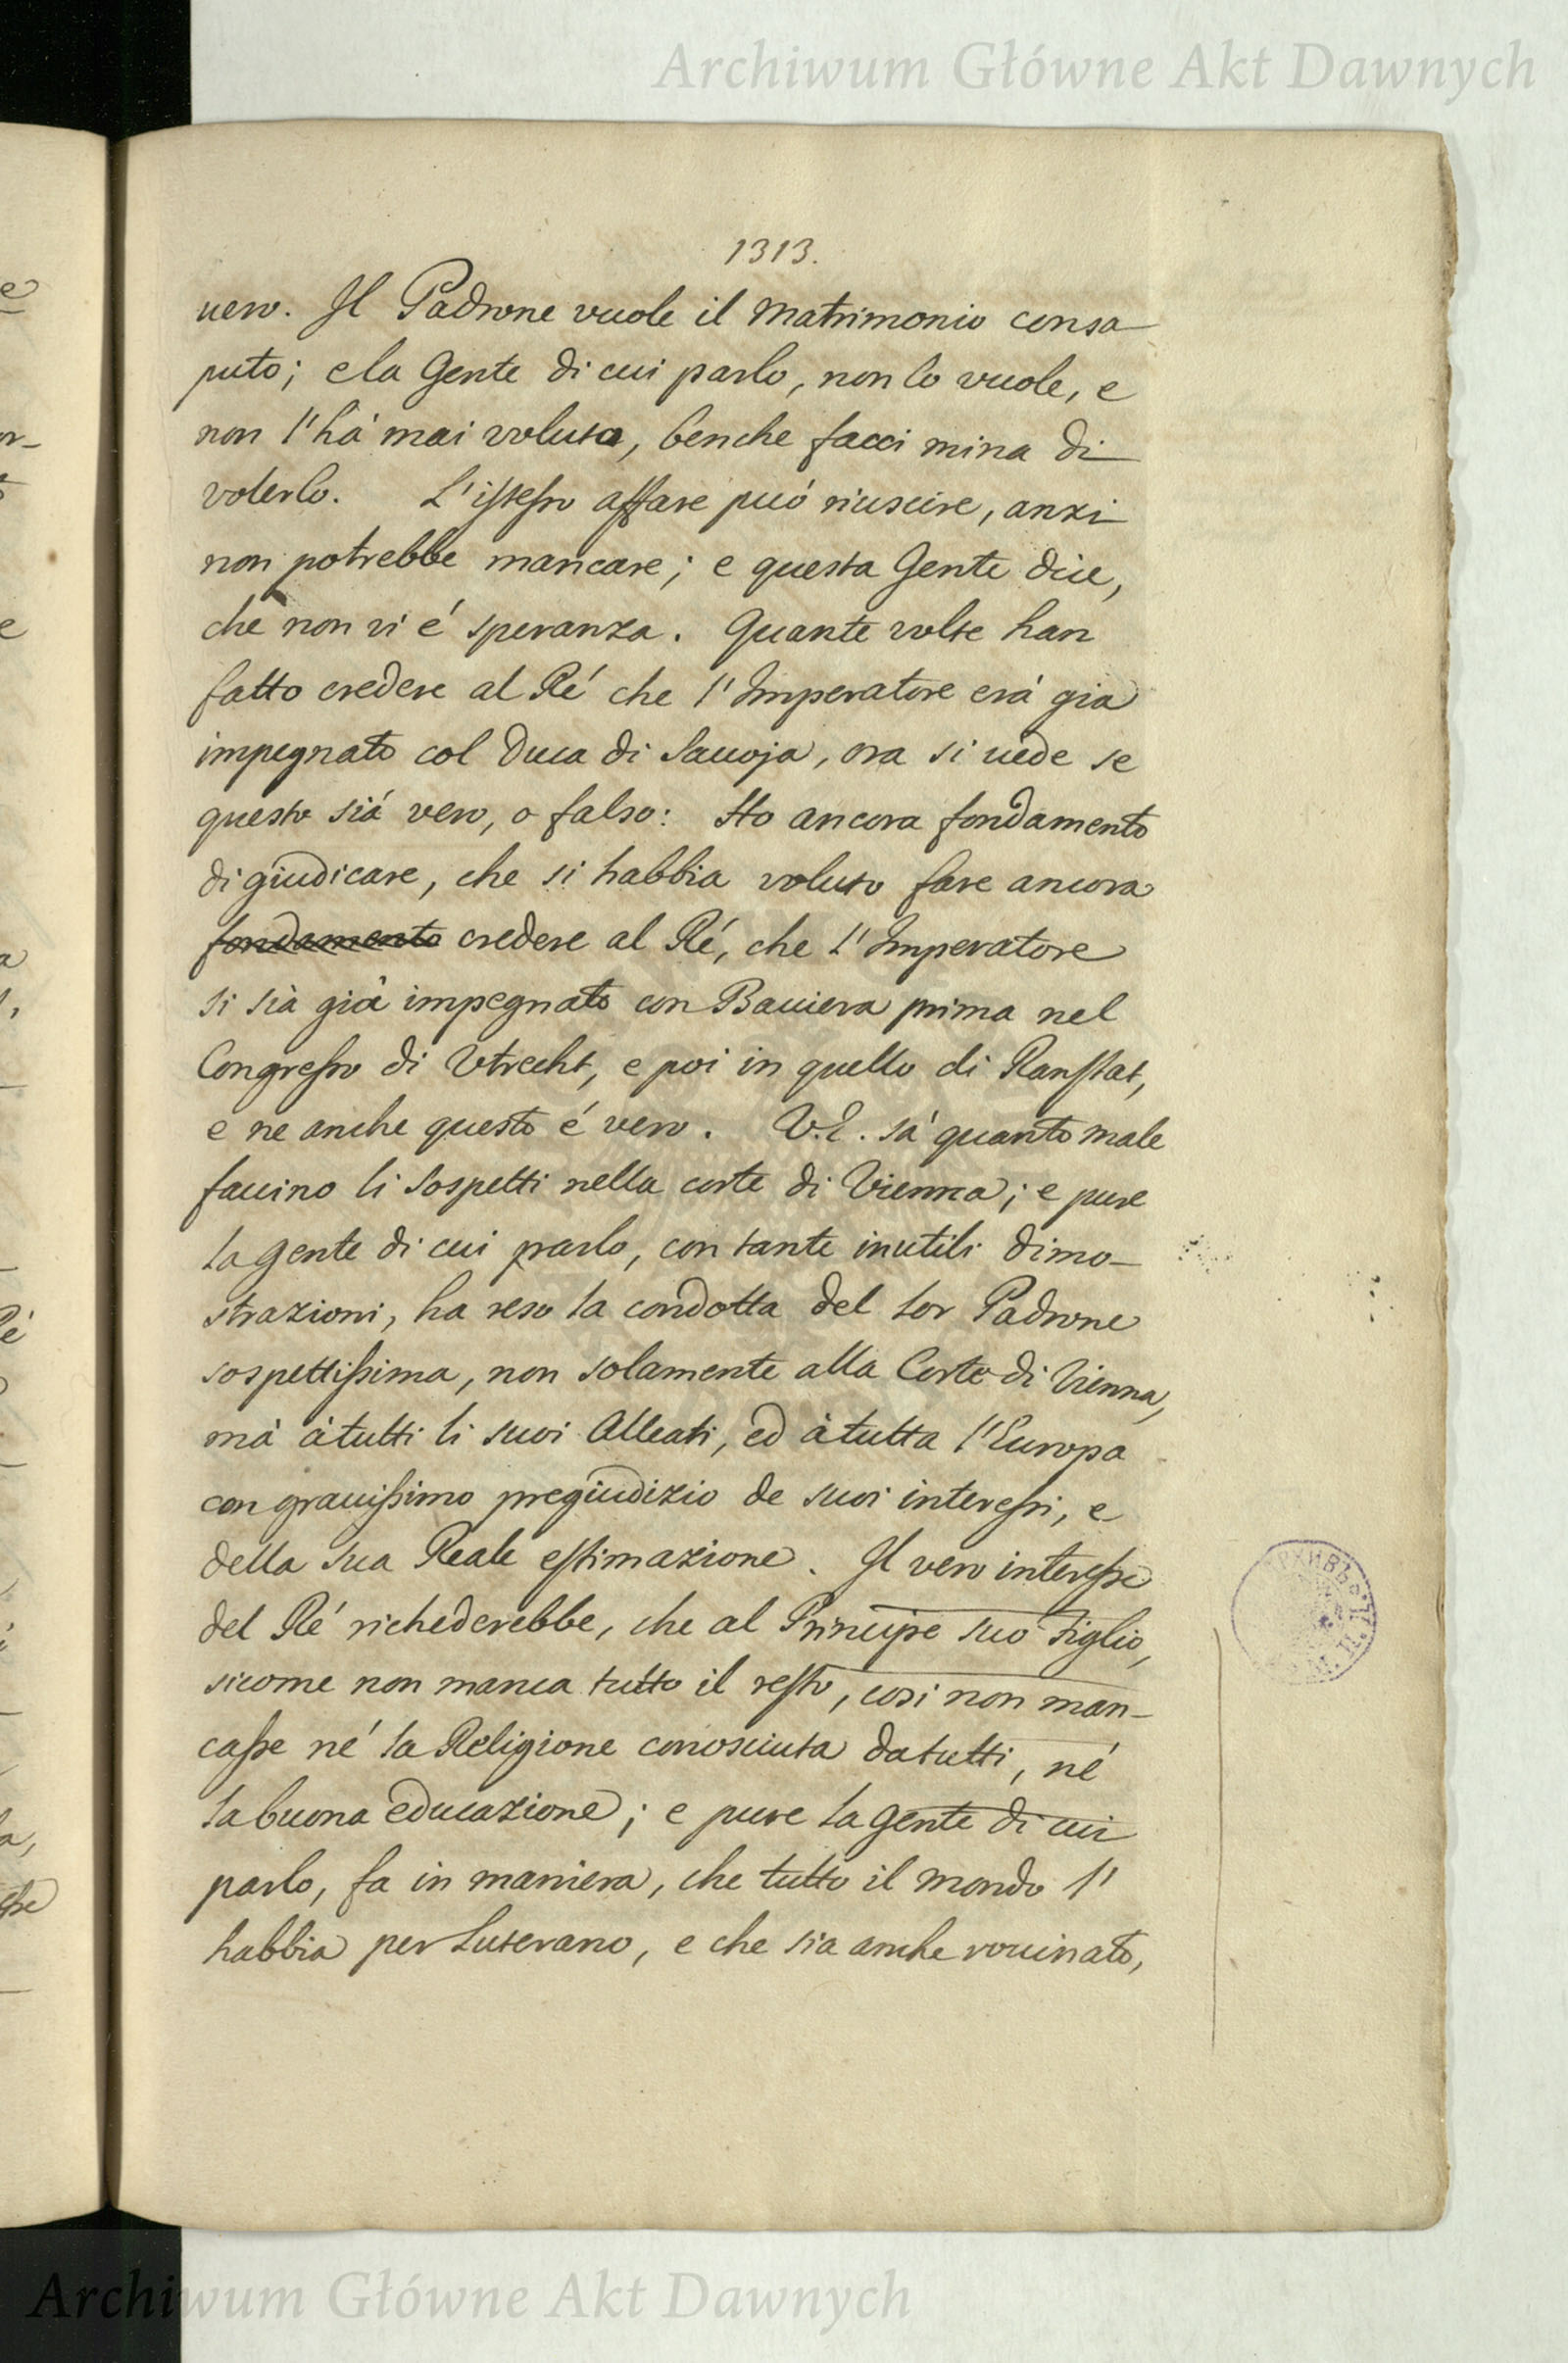 Archiwum Główne Akt Dawnych
1313.
uero. Il Padrone vuole il Matrimonio consa
puto; e la Gente di cui parlo, non lo vuole, e
non l'hà mai voluto, benche facci mina di
volerlo. L'istesso affare può riuscire, anzi
non potrebbe mancare; e questa Gente dice,
che non vi é speranza. Quante volte han
fatto credere al Ré che l'Imperatore erà gia
impegnato col Duca di Sauoja, ora si uede se
questo sià vero, o falso: Ho ancora fondamento
di giudicare, che si habbia voluto fare ancora
fondamento credere al Ré, che l'Imperatore
si sià già impegnato con Bauiera prima nel
Congresso di Vtrecht, e poi in quello di Ranstat,
e ne anche questo é vero. V.E. sà quanto male
faccino li sospetti nella corte di Vienna; e pure
la gente di cui parlo, con tante inutili dimo-
strazioni, ha reso la condotta del lor Padrone
sospettissima, non solamente alla Corte di Vienna,
mà à tutti li suoi Alleati, ed à tutta l'Europa
con grauissimo pregiudizio de suoi interessi, e
della sua Reale estimazione. Il vero interesse
del Ré richederebbe, che al Principe suo Figlio,
sicome non manca tutto il resto, cosi non man-
casse né la Religione conosciuta da tutti, né
la buona educazione; e pure la gente di cui
parlo, fa in maniera, che tutto il mondo l'
habbia per Luterano, e che sia anche rouinato,
Archiwum Główne Akt Dawnych